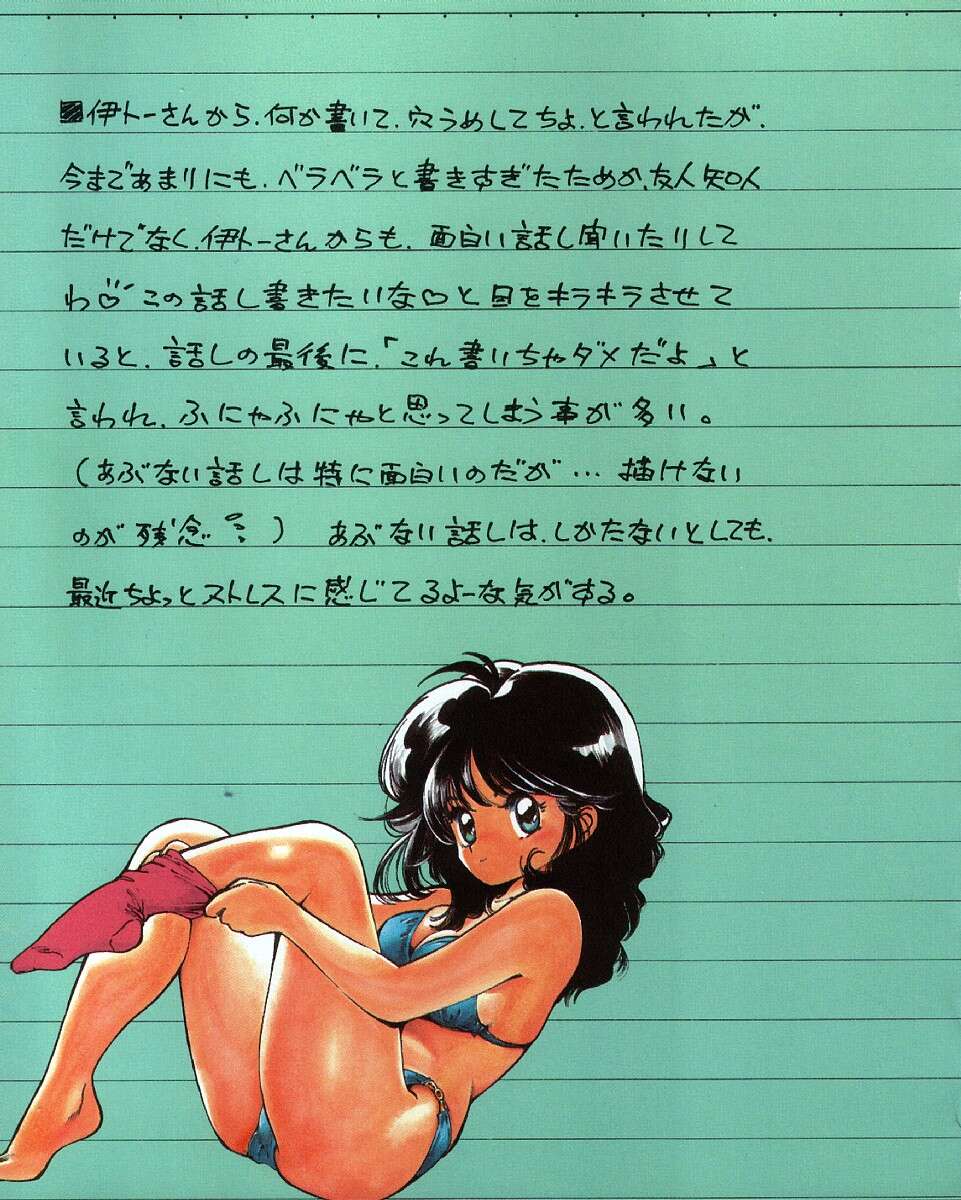 ■伊トーさんから、何か書いて、穴うめしてちょ、と言われたが、
今まであまりにも、ベラベラと書きすぎたためか、友人知人
だけでなく、伊トーさんからも、面白い話し聞いたりして
わ♡この話し書きたいな♡と目をキラキラさせて
いると、話しの最後に、「これ書いちゃダメだよ」と
言われ、ふにゃふにゃと思ってしまう事が多い。
(あぶない話しは特に面白いのだが…描けない
のが残念) あぶない話しは、しかたないとしても、
最近ちょっとストレスに感じてるよーな気がする。